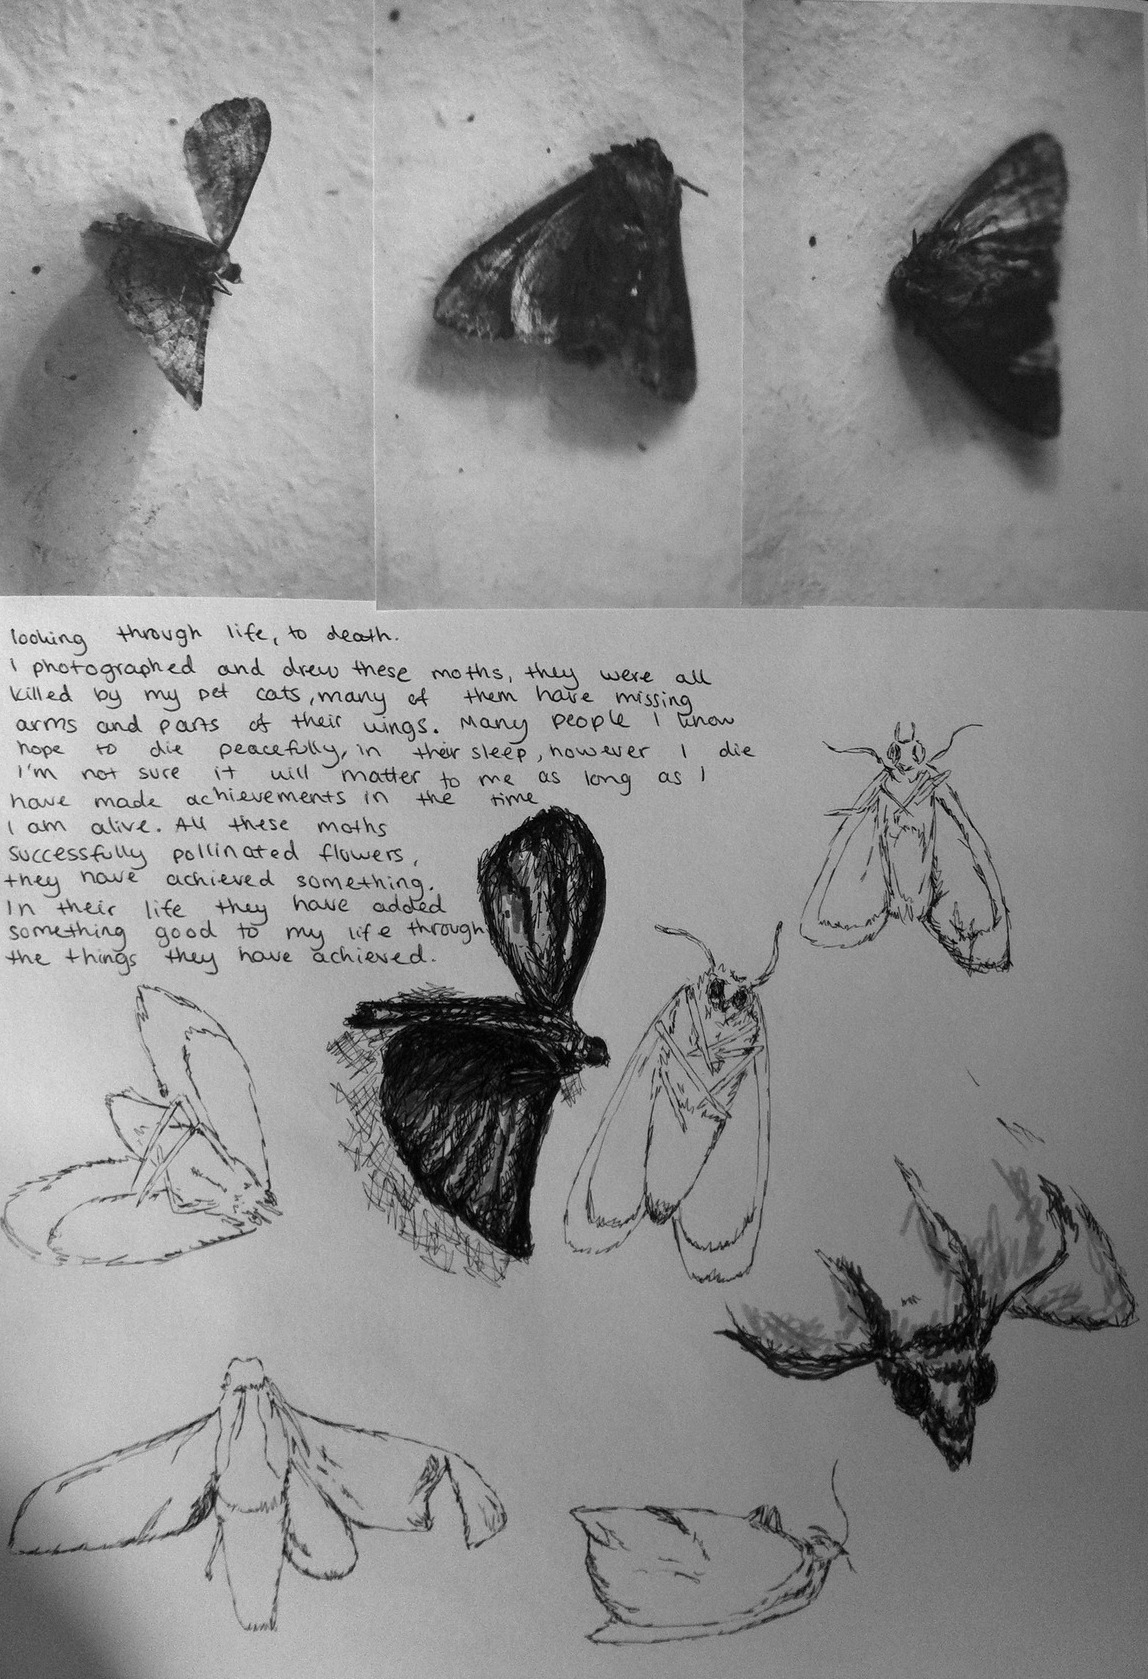 looking through life, to death.
I photographed and drew these moths, they were all
killed by my pet cats, many of them have missing
arms and parts of their wings. Many people I know
hope to die peacefully, in their sleep, however I die
I'm not sure it will matter to me as long as I
have made achievements in the time
I am alive. All these moths
successfully pollinated flowers,
they have achieved something.
In their life they have added
something good to my life through
the things they have achieved.